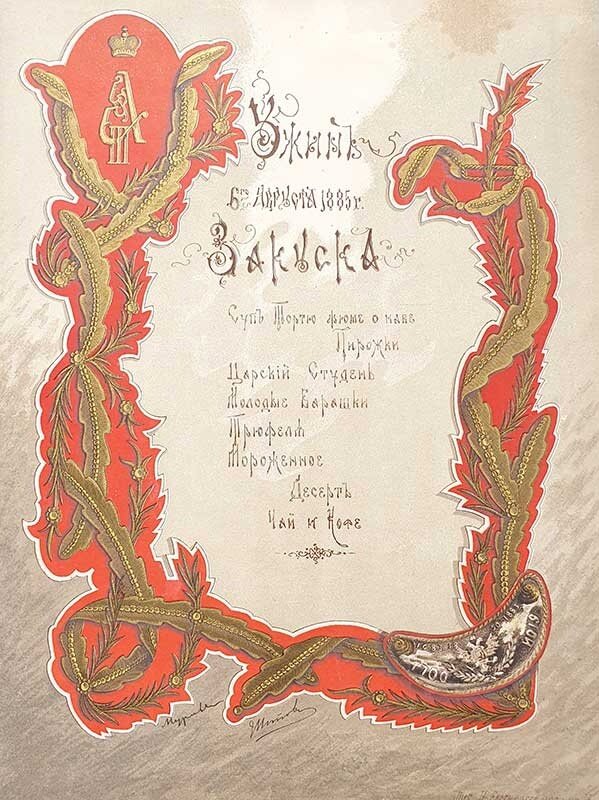 А
III
Ужинъ
6го Августа 1885 г.
Закуска
Супъ Тортю
Пирожки
Царскій Студень
Молодые Барашки
Трюфеля
Мороженное
Десертъ
Чай и Кофе
700